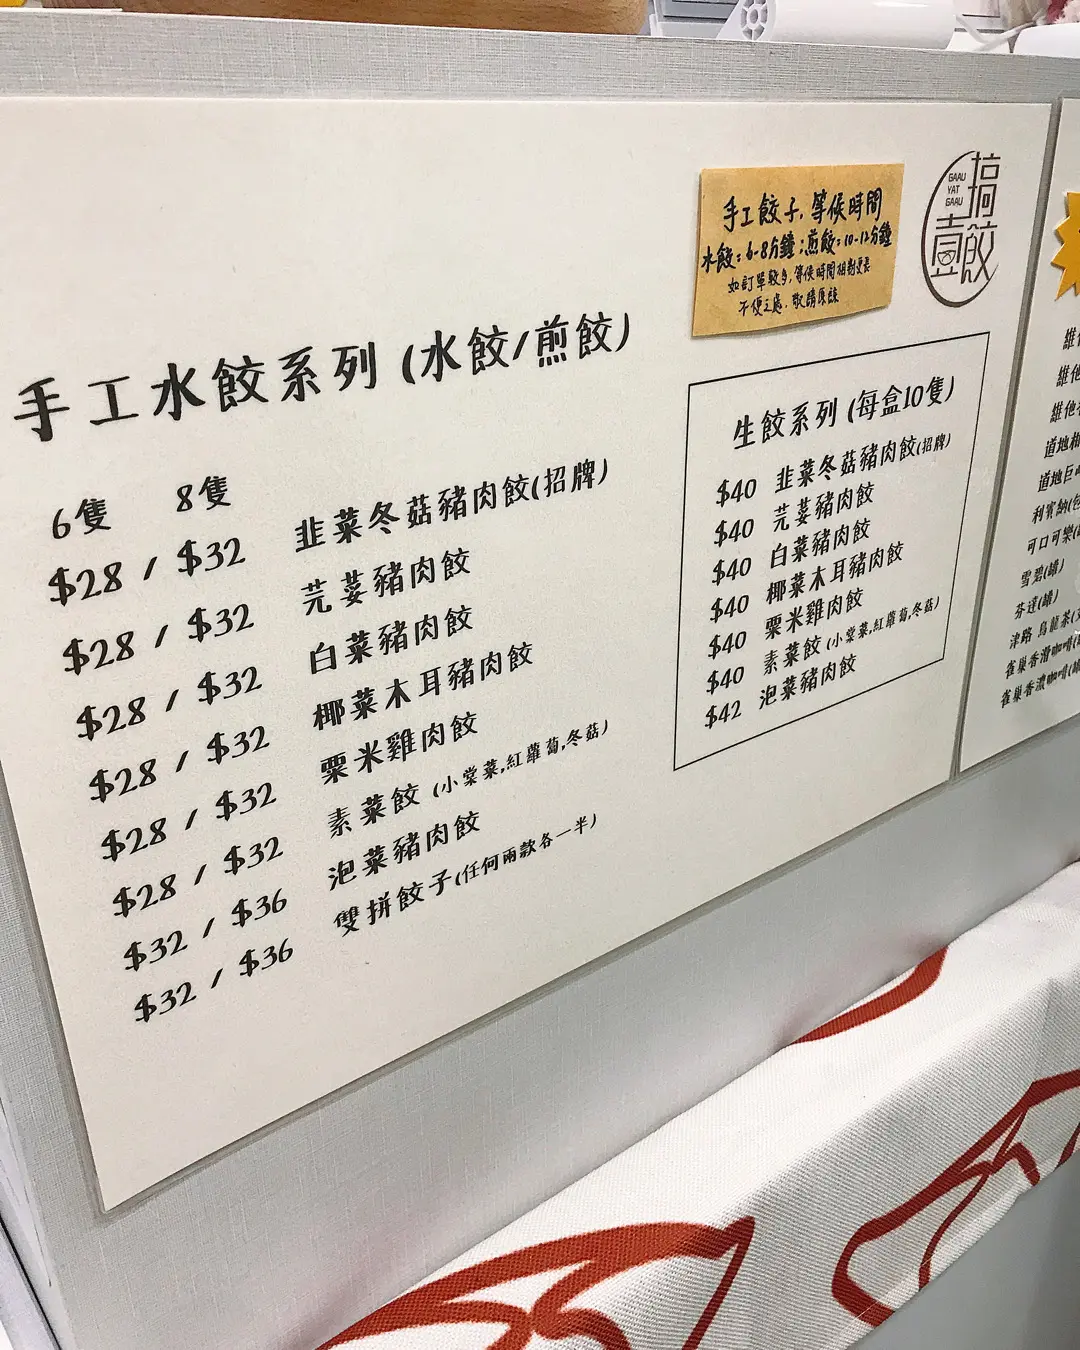 手工餃子，等候時間
水餃=6-8分鐘；煎餃=10-12分鐘
如訂單較多，等候時間相對更長
不便之處，敬請原諒
GAAU
YAT
GAAU
搞
壹餃
手工水餃系列 (水餃/煎餃)
6隻 8隻
$28 / $32 韭菜冬菇豬肉餃(招牌)
$28 / $32 芫荽豬肉餃
$28 / $32 白菜豬肉餃
$28 / $32 椰菜木耳豬肉餃
$28 / $32 粟米雞肉餃
$28 / $32 素菜餃 (小棠菜,紅蘿蔔,冬菇)
$32 / $36 泡菜豬肉餃
$32 / $36 雙拼餃子(任何兩款各一半)
生餃系列 (每盒10隻)
$40 韭菜冬菇豬肉餃(招牌)
$40 芫荽豬肉餃
$40 白菜豬肉餃
$40 椰菜木耳豬肉餃
$40 粟米雞肉餃
$40 素菜餃 (小棠菜,紅蘿蔔,冬菇)
$42 泡菜豬肉餃
維他
維他
道地
道地
利賓納(
可口可樂(
雪碧(罐)
芬達(罐)
津路 烏龍茶(
雀巢香滑咖啡(
雀巢香濃咖啡(罐